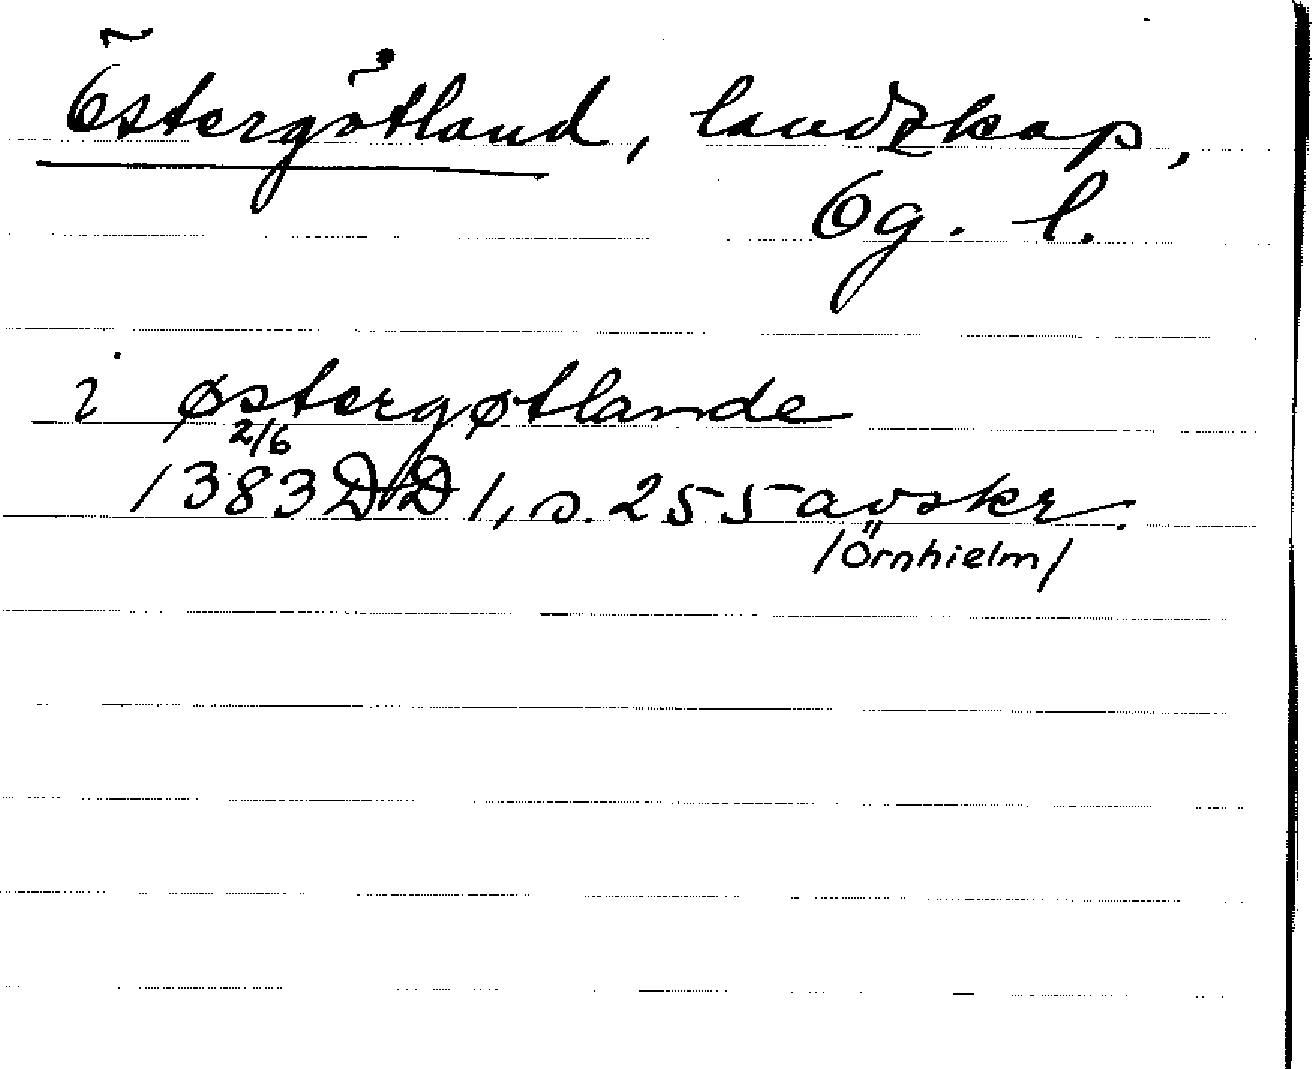 Östergötland, landskap,
Ög. l.
i østergøtlande
2/6
1383 DD 1, s. 255 avskr.
/Örnhielm/